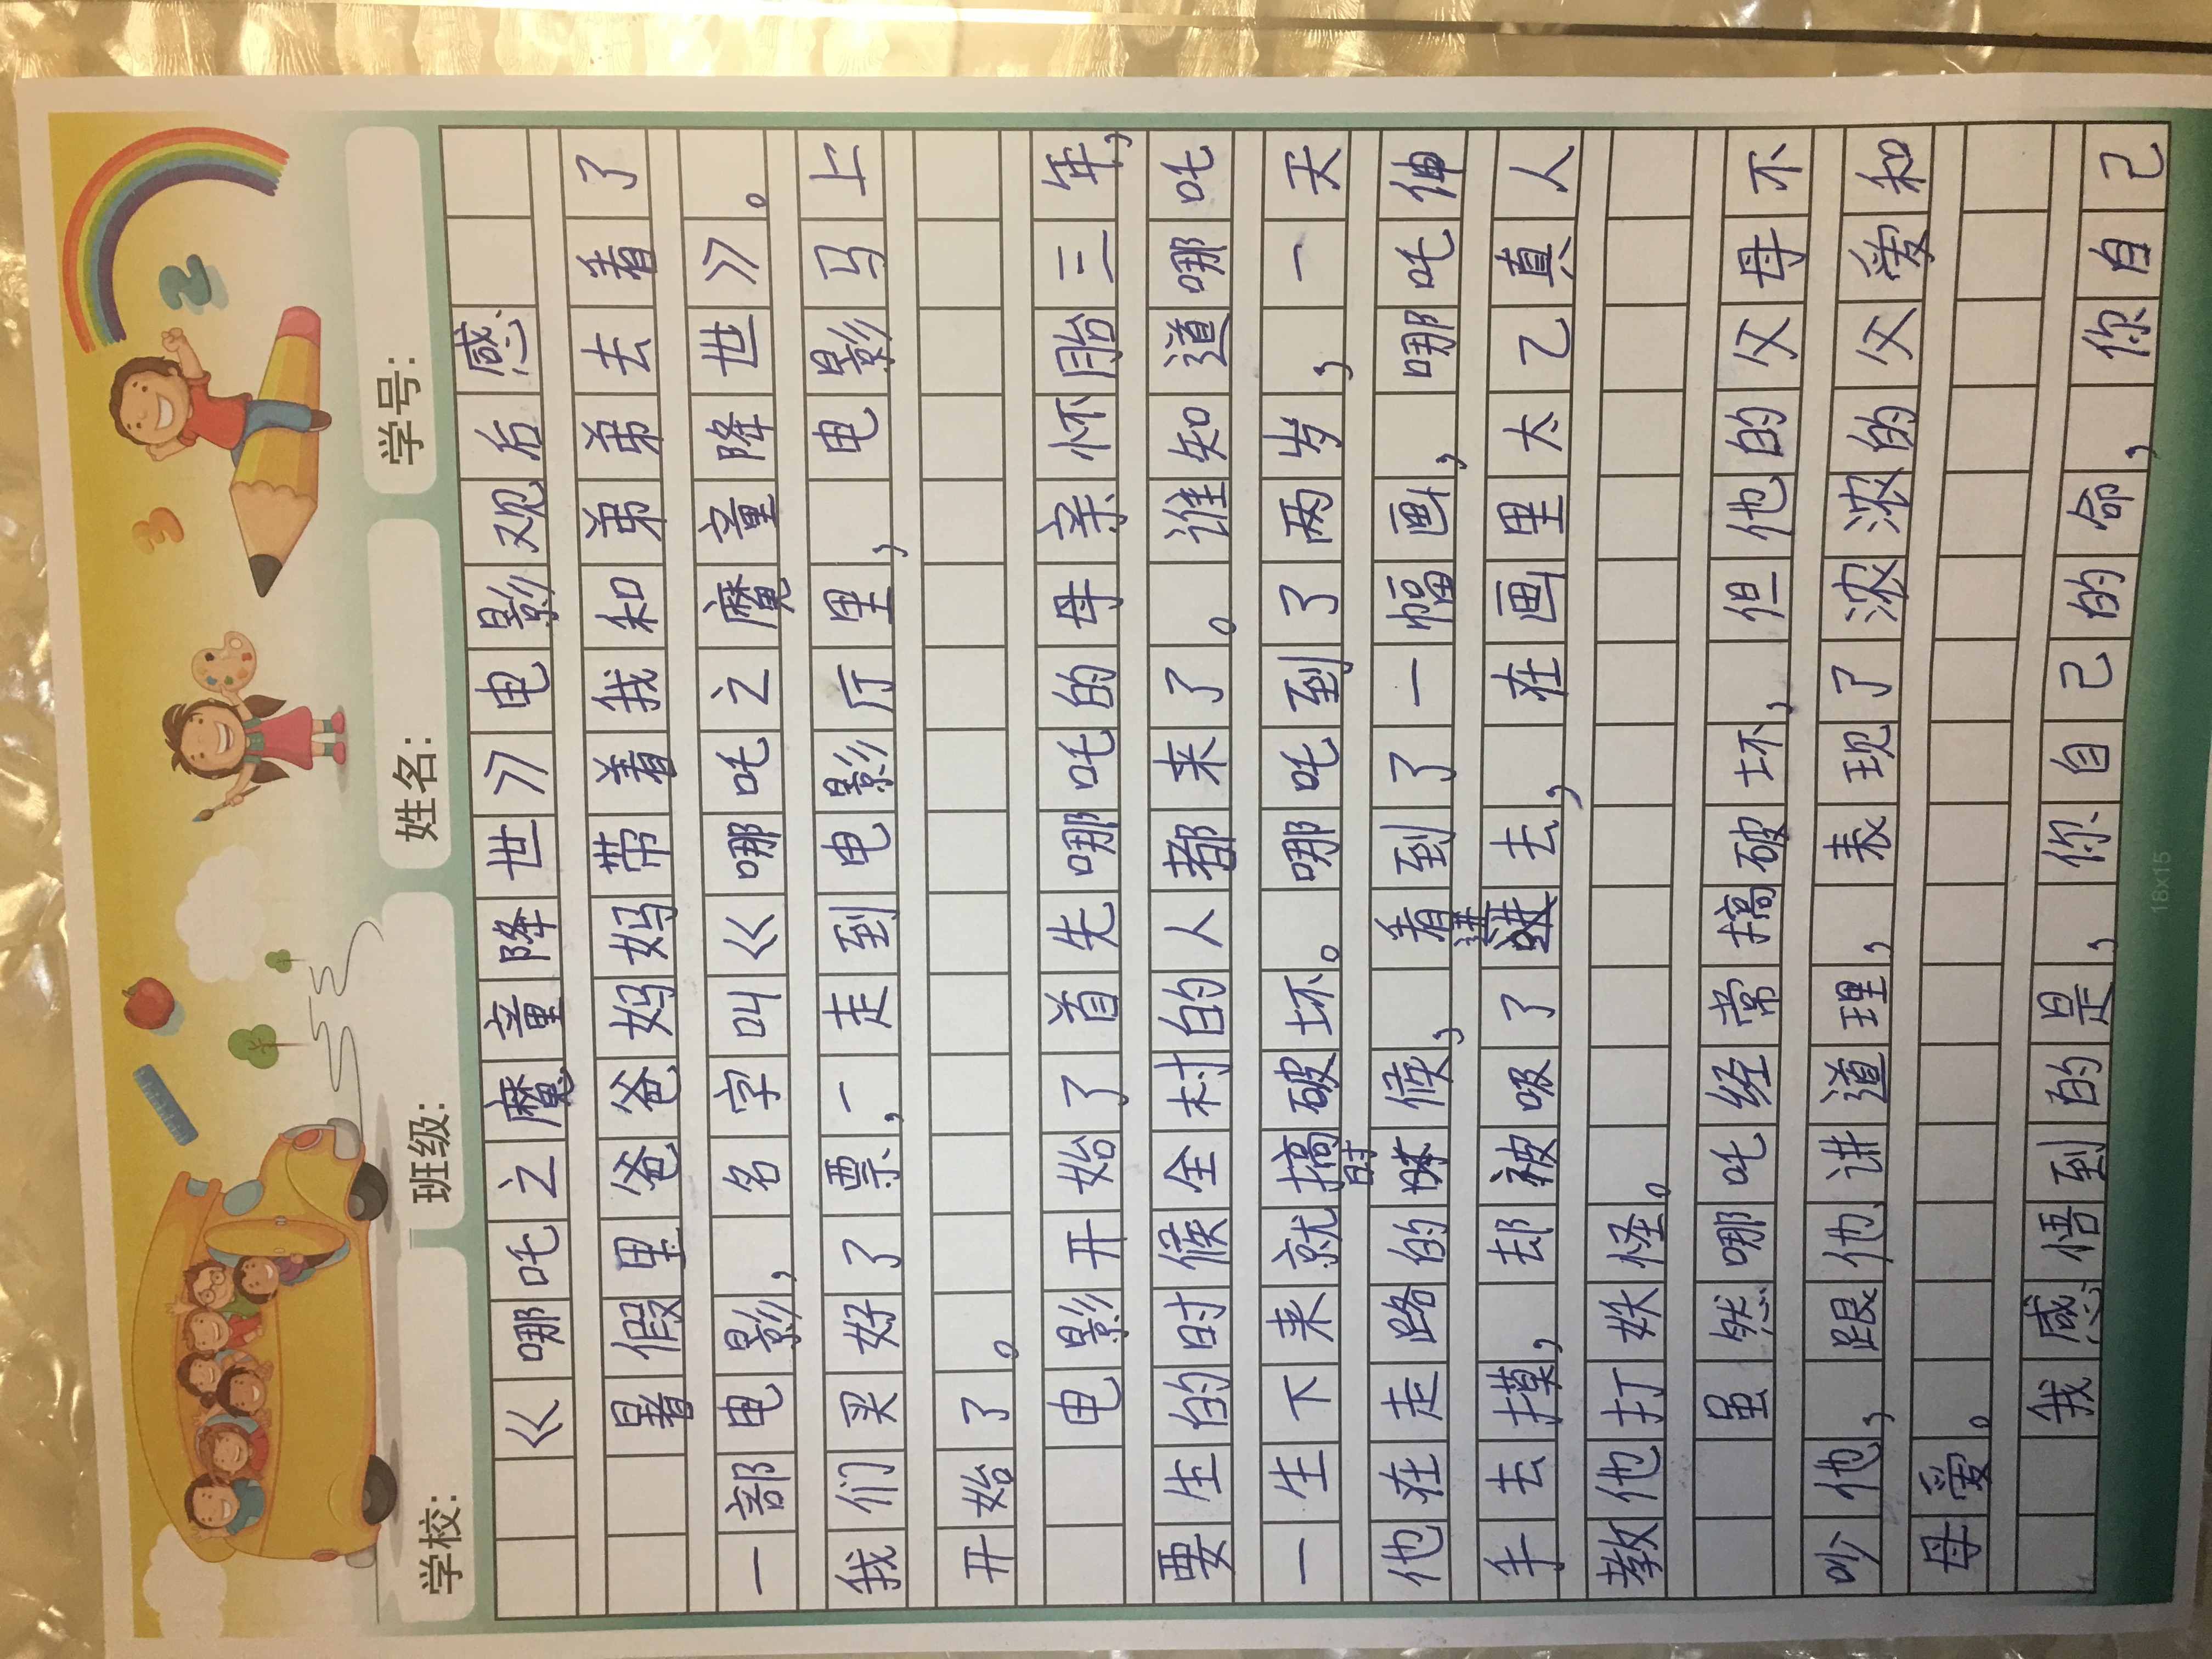 学校: 班级: 姓名: 学号:
《哪吒之魔童降世》电影观后感
暑假里爸爸妈妈带着我和弟弟去看了
一部电影,名字叫《哪吒之魔童降世》。
我们买好了票,一走到电影厅里,电影马上
开始了。
电影开始了首先哪吒的母亲怀胎三年,
要生的时候全村的人都来了。谁知道哪吒
一生下来就搞破坏。哪吒到了两岁,一天
他在走路的时候,看到了一幅画,哪吒伸
手去摸,却被吸了进去,在画里太乙真人
教他打妖怪。
虽然哪吒经常搞破坏,但他的父母不
吵他,跟他讲道理,表现了浓浓的父爱和
母爱。
我感悟到的是,你自己的命,你自己
18x15